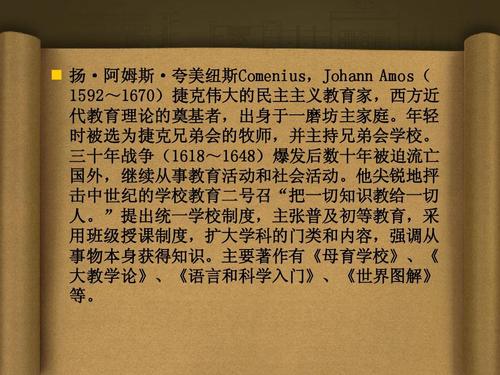 扬·阿姆斯·夸美纽斯Comenius，Johann Amos（
1592～1670）捷克伟大的民主主义教育家，西方近
代教育理论的奠基者，出身于一磨坊主家庭。年轻
时被选为捷克兄弟会的牧师，并主持兄弟会学校。
三十年战争（1618～1648）爆发后数十年被迫流亡
国外，继续从事教育活动和社会活动。他尖锐地抨
击中世纪的学校教育二号召“把一切知识教给一切
人。”提出统一学校制度，主张普及初等教育，采
用班级授课制度，扩大学科的门类和内容，强调从
事物本身获得知识。主要著作有《母育学校》、《
大教学论》、《语言和科学入门》、《世界图解》
等。